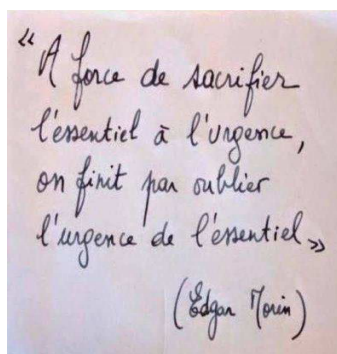 “ A force de sacrifier
l'essentiel à l'urgence,
on finit par oublier
l'urgence de l'essentiel »
(Edgar Morin)